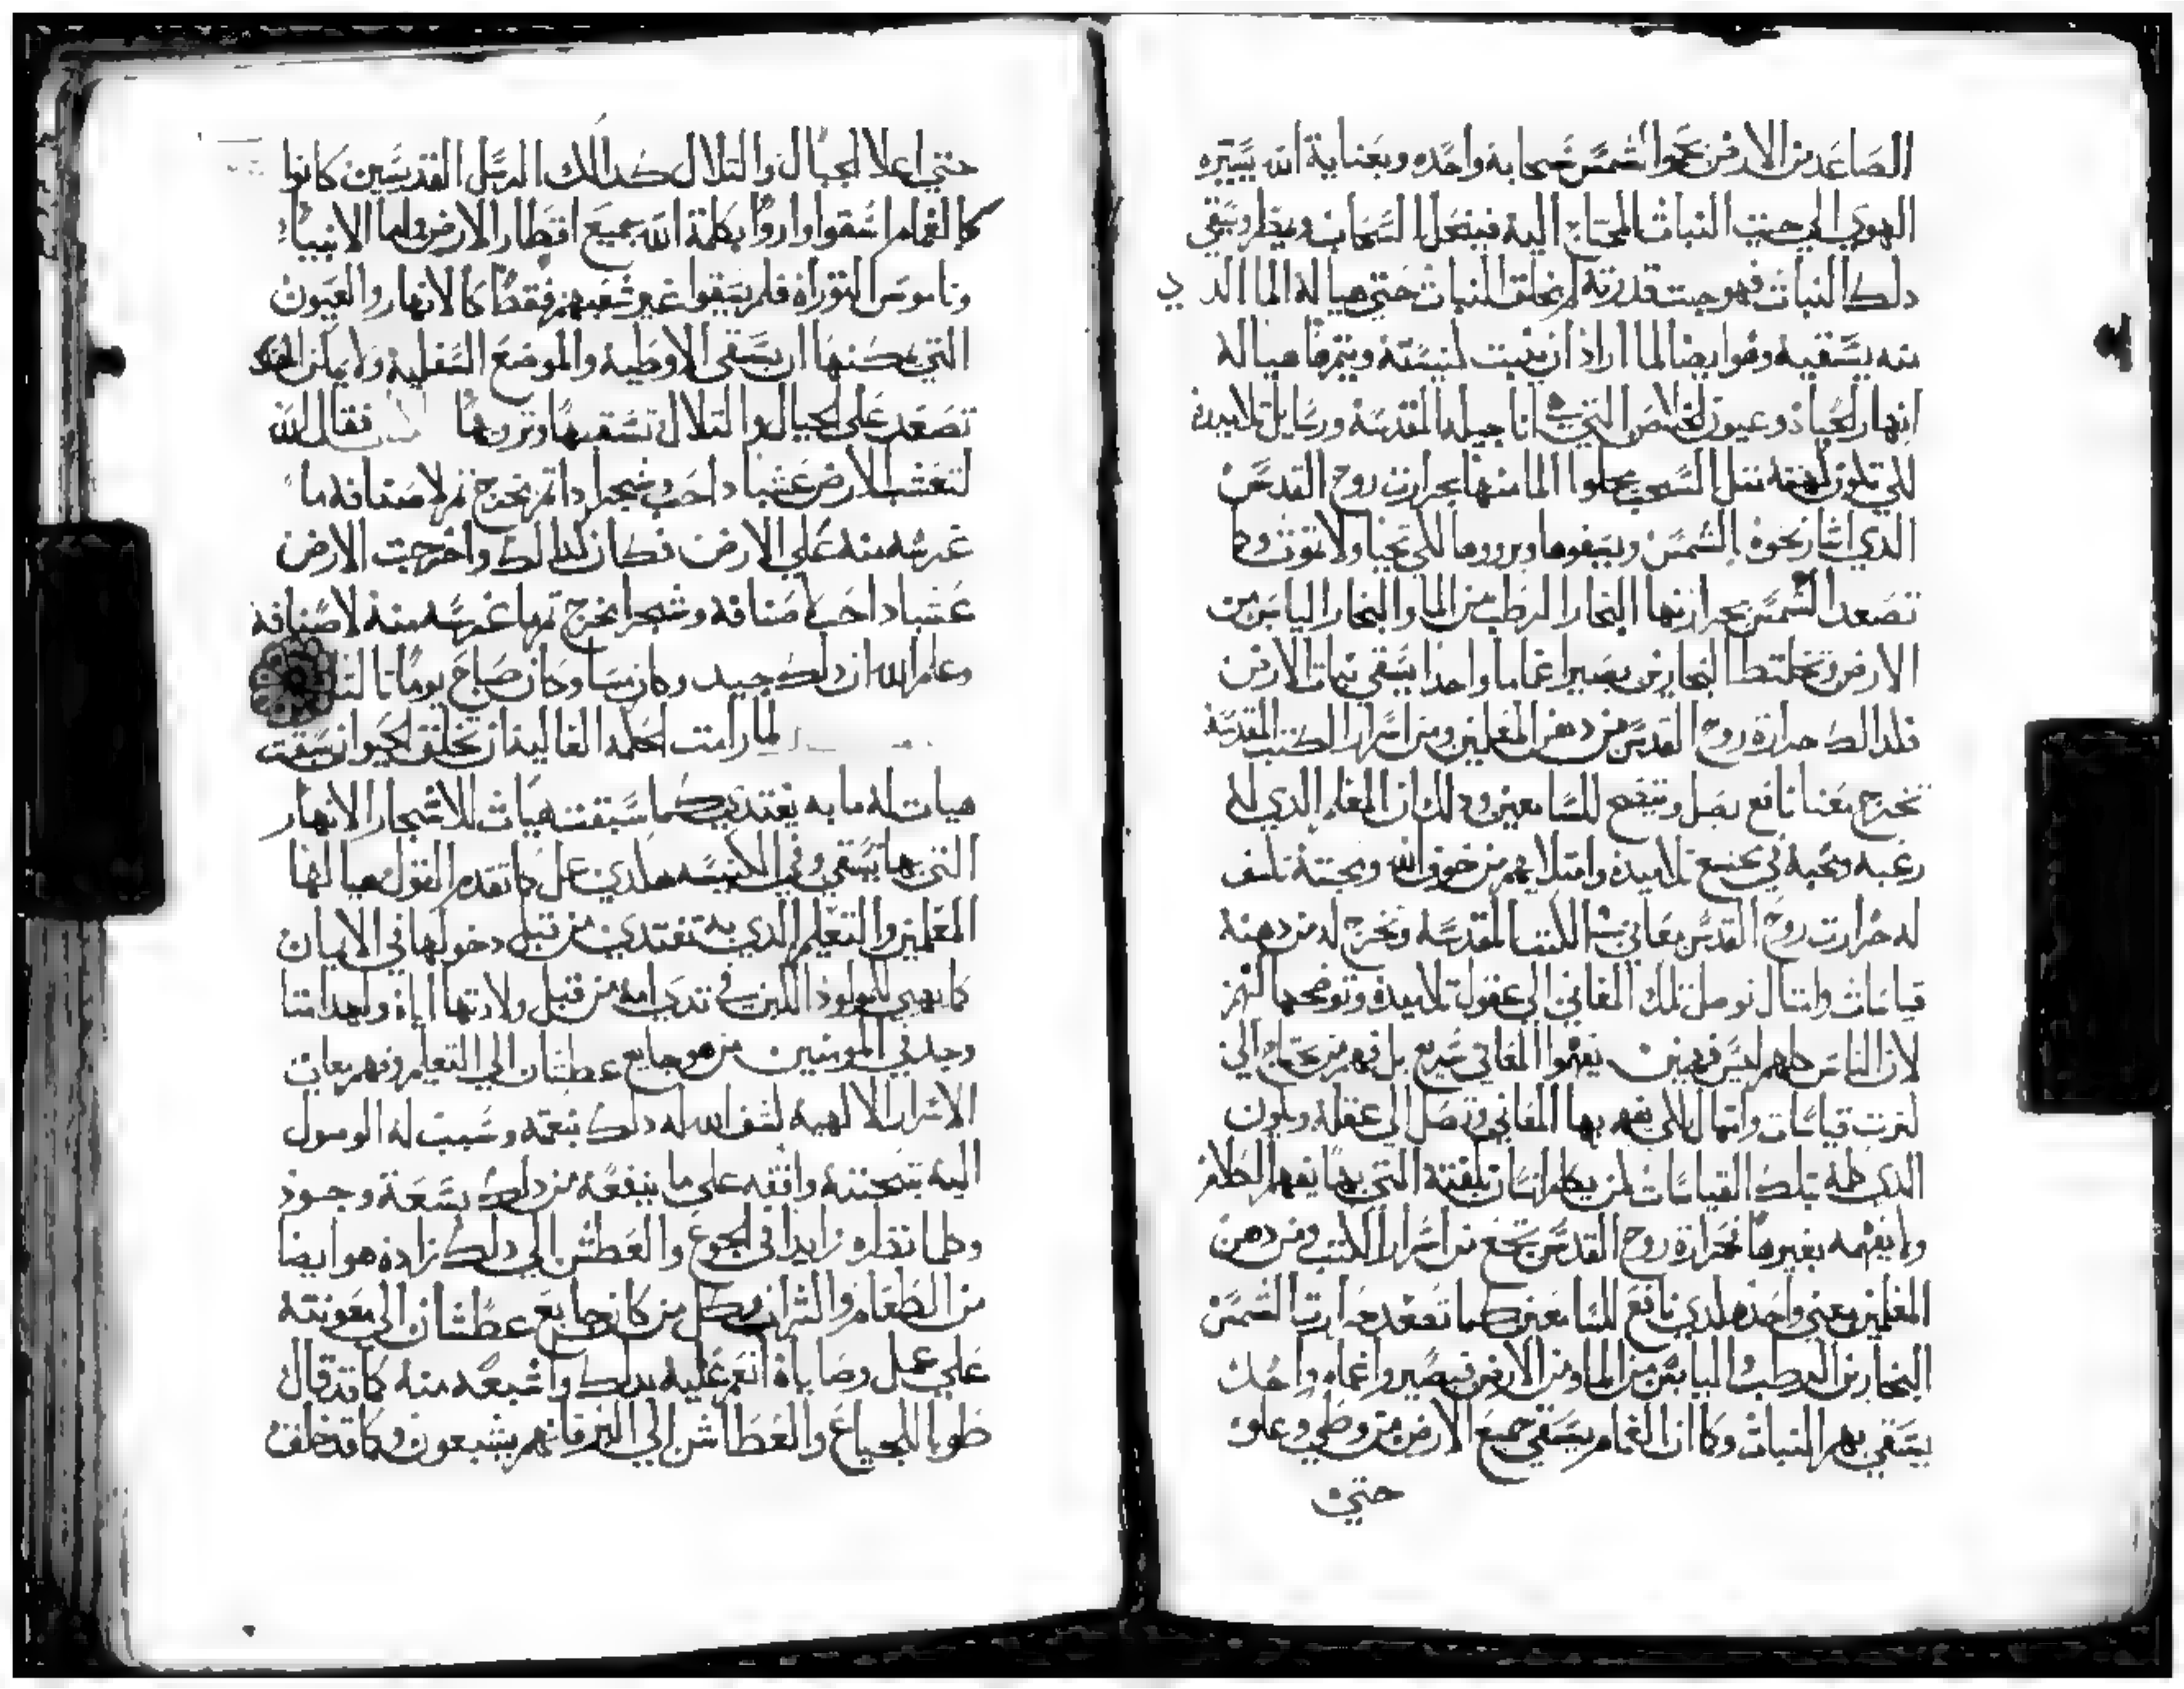 الصاعد من الارض نحو الشمس سحابة واحده وبعناية الله يسيره
الهوي الي حيت النبات المحتاج اليه فيفعل السحاب ويطر ويسقي
دلك النبات فهو جبت قدرته لم تخلق النبات حتي هيا له الما الدي
منه يسقيه وهو ايضا لما اراد ان ينبت لنيسته ويتمرها هيا له
انهار الحياه وعيون الخلاص التي في اناجيله المقدسه ورسايل تلاميده
للي تلون لهنته تتل السحب يحلوا الما منها بحرارت روح القدس
الدي اشار نحوه بالشمس ويسقوها ويرووها للي تحيا ولا تموت وكا
تصعد الشمس بحرارتها البخار الرطب من الما والبخار اليابس من
الارض وتختلط البخارين يصيرا غماما واحدا يسقي نبات الارض
فلدالك حرارة روح القدس من دهن المعلمين ومن اسرار الكتب المقدسه
تخرج معنا نافع يصل ويتضح للسامعين ودلك ان المعلم الدي له
رغبه ومحبة في تلاميده وامتلايهم من خوف الله ومحبتة تلشف
له حرارت روح القدس معاني الكتب المقدسة وتخرج له من دهنه
قياسات وامتال توصل تلك المعاني الي عقول تلاميده وتوضحها لهم
لان الناس كلهم ليس فهمين يفهموا المعاني سريع بل فيهم من محتاج الي
لترت قياسات وامتال للي يفهم بها المعاني وتصل الي عقله ويلون
الدي كلمه بتلك القياسات لمن يكلم انسان بلغته التي بها يفهم الكلام
ولا يفهمه بغيرها فحرارة روح القدس تجمع من اسرار الكتب ومن دهن
المعلمين معني واحد هلدي نافع للسامعين كما تصعد حرارت الشمس
البخارين الرطب واليابس من الما ومن الارض فيصيروا غمام واحد
يستقي بهم النبات وكما ان الغمام يسقي جميع الارض من وطي وعلو
حتي
حتي اعلا الجبال والتلال كدالك الرسل القديسين كانوا
كالغمام اسقوا وارووا بكلمة الله جميع اقطار الارض فاما الانبياء
وناموس التوراه فلم يسقوا غير شعبهم فقط كالانهار والعيون
التي يمكنها ان تسقي الاوطيه والموضع السفليه ولا يمكن
تصعد علي الجبال والتلال تسقيها وترويها فقال الله
لتعشب الارض عشبا دا حب وشجرا دا تمر تخرج تمر لاصنافه ما
غرسه منه علي الارض فكان كدالك واخرجت الارض
عشبا دا حب لاصنافه وشجرا يخرج تمرا غرسه منه لاصنافه
وعلم الله ان دلك جيد وكان مسا وكان صباح يوما تالتا
لما رامت الحكمه العاليه ان تخلق الحيوان سبقت
هيات له ما به يغتدي كما سبقت هيات للاشجار الانهار
التي بها يستقي وفي الكنيسه هلدي عمل كما تقدم القول هيا لها
المعلمين والتعليم الدي به تغتدي من قبل دخولها في الايمان
كما يهيي للمولود اللبن في تدي امه من قبل ولادتها اياه ولهدا متا
وجد في المومنين من هو جايع عطشان الي التعليم وفهم معاني
الاسرار الالهيه لشف الله له دلك بنعمه وسبب له الوصول
اليه بتحننه واقفه علي ما ينفعه من دلك بسعة وجود
وكلما نظره زايدا في الجوع والعطش الي دلك زاده هو ايضا
من الطعام والشراب وكل من كان جايع عطشان الي معونته
علي عمل وصاياه انعم عليه بدلك واشبعه منه كما قد قال
طوبا للجياع والعطاش الي البر فانهم يشبعون وكما قد خلق